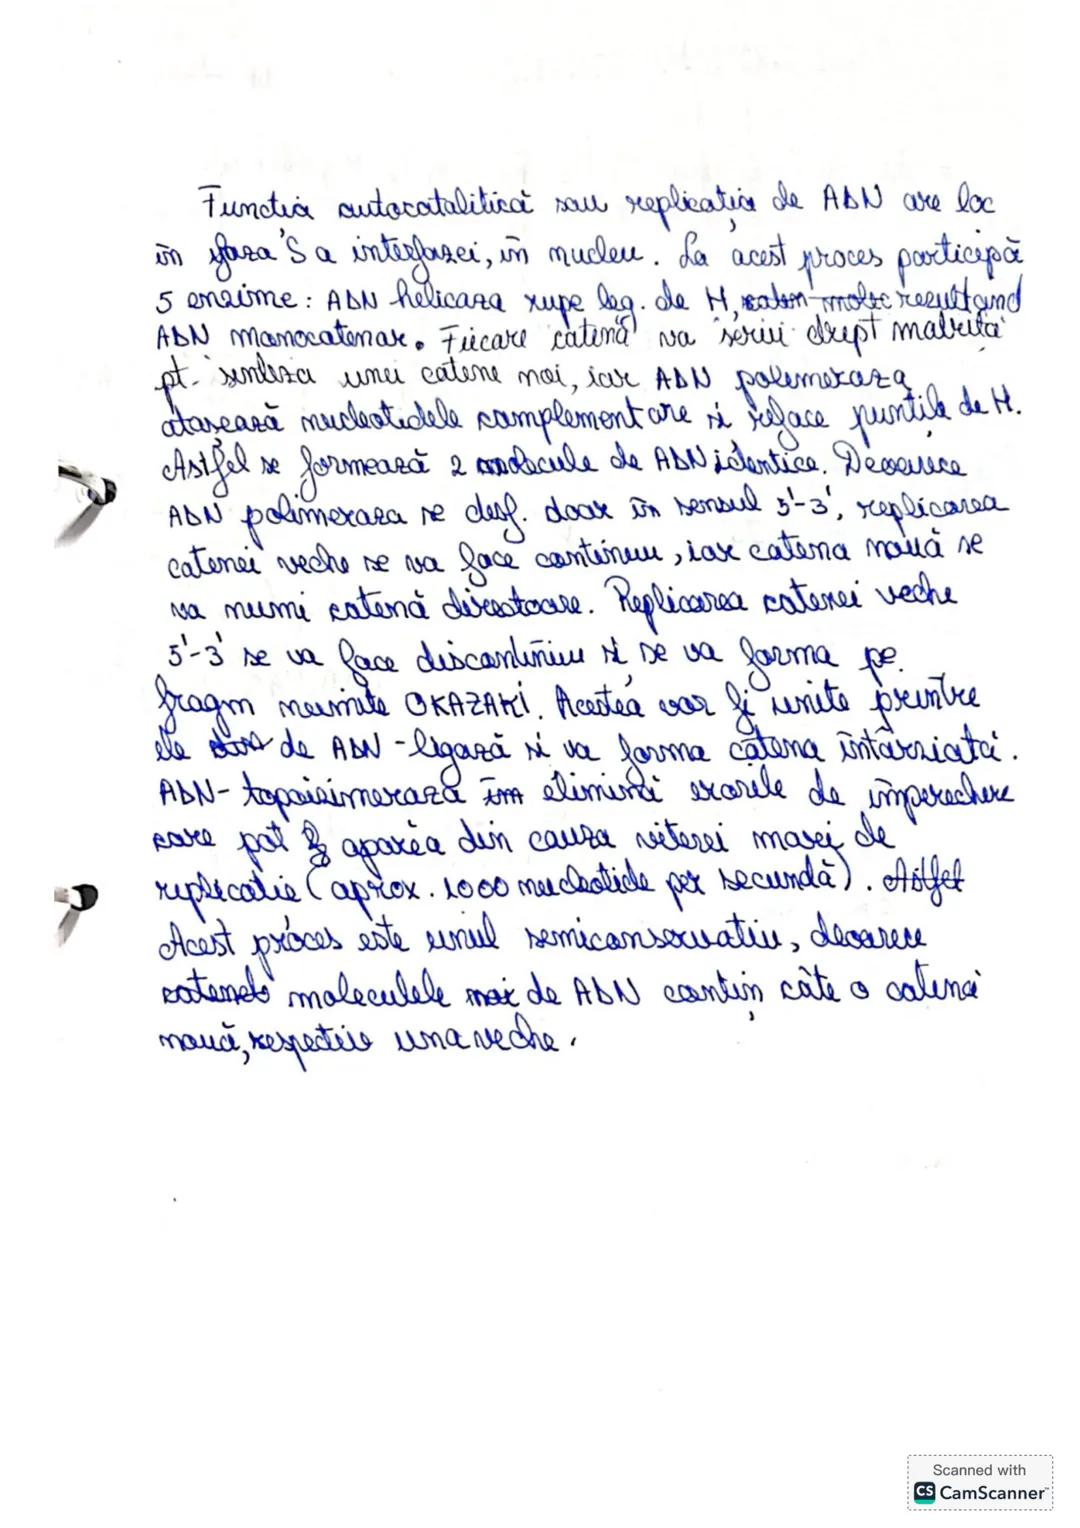 Funcția autocatalitică sau replicația de ADN are loc
în faza S a interfazei, în nucleu. La acest proces participă
5 enzime: ADN helicaza rupe leg. de H, rezultând
ADN monocatenar. Fiecare catenă va servi drept matriță
pt. sinteza unei catene noi, iar ADN polimeraza
atașează nucleotidele complementare și reface punțile de H.
Astfel se formează 2 molecule de ADN identice. Deoarece
ADN polimeraza se desf. doar în sensul 5'-3', replicarea
catenei veche se va face continuu, iar catena nouă se
va numi catenă directoare. Replicarea catenei veche
5'-3' se va face discontinuu și se va forma pe
fragm numite OKAZAKI. Acestea vor fi unite printre
ele de ADN-ligază și va forma catena întârziată.
ADN- elimină erorile de împerechere
care pot apărea din cauza vitezei mari de
replicație (aprox. 1000 nucleotide per secundă). Astfel
Acest proces este unul semiconservativ, deoarece
moleculele noi de ADN conțin câte o catenă
nouă, respectiv una veche.
Scanned with
CS CamScanner